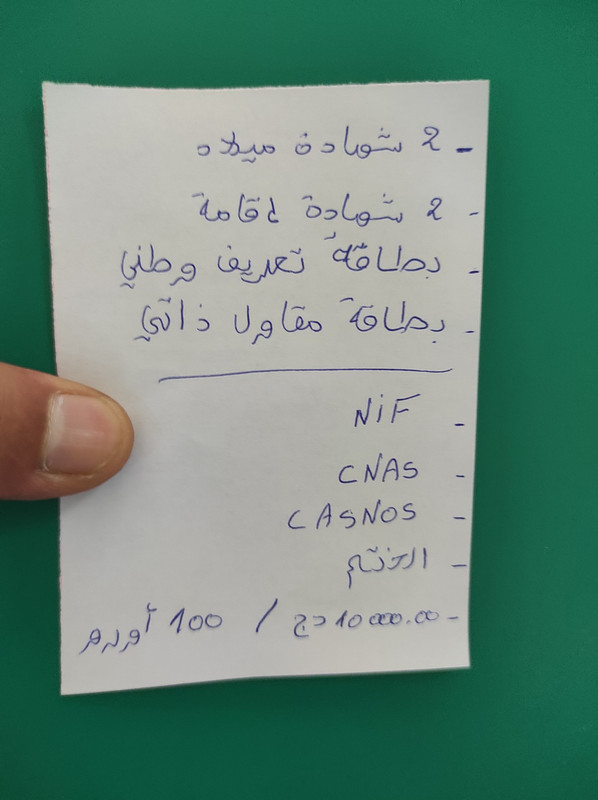 - 2 شهادة ميلاد
- 2 شهادة إقامة
- بطاقة تعريف وطني
- بطاقة مقاول ذاتي
- NiF
- CNAS
- CASNOS
- الختم
- 10000.00 دج / 100 أورو